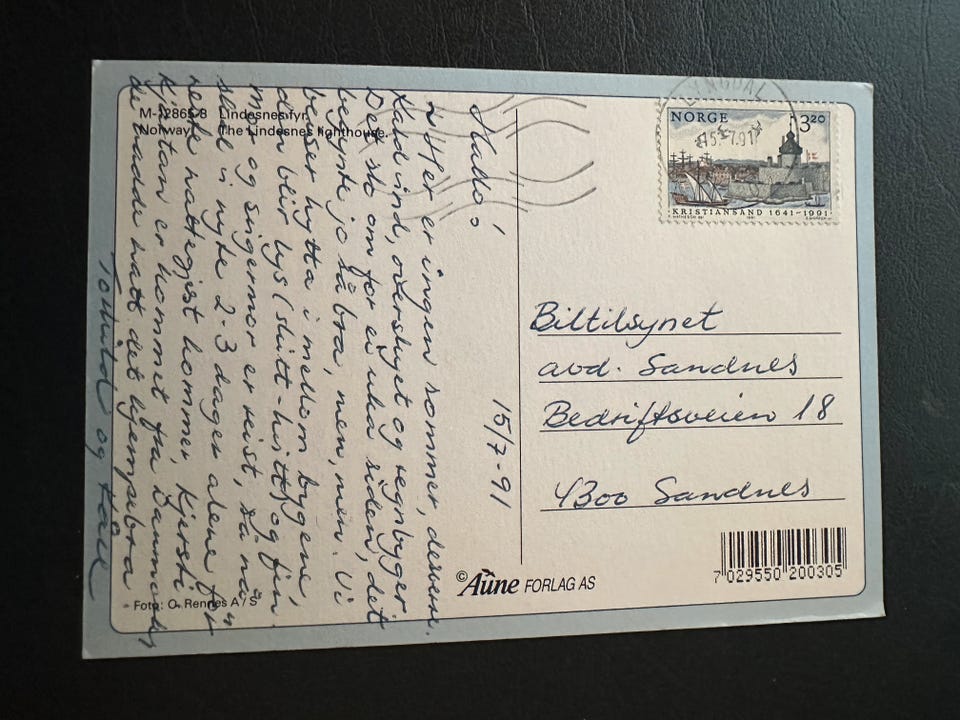 M-12865-8 Lindesnes fyr.
Norway The Lindesnes lighthouse.
Hallo!
15/7-91
Her er ingen sommer, dessverre.
Kald vind, overskyet og regnbyger.
Det sto om for ei uka siden, det
begynte jo så bra, men, men. Vi
beiser hytta i mellom bygene,
den blir lys (skitt-hvitt) og fin.
Mor og svigermor er reist, så nå
skal vi nyte 2-3 dager alene før
neste nattegjest kommer, Kjersti
Kristian er kommet fra Danmark,
de hadde hatt det kjempebra
Torhild og Kåre
Foto: O. Rennes A/S
© Aune FORLAG AS
LYNGDAL
15.-7.91
NORGE 3 20
KRISTIANSAND 1641-1991
Biltilsynet
avd. Sandnes
Bedriftsveien 18
4300 Sandnes
7 029550 200305